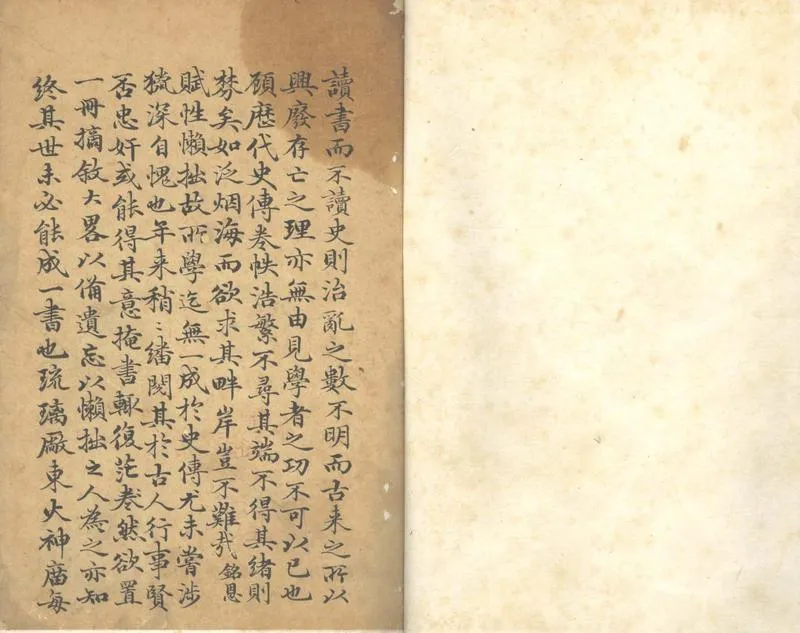 讀書而不讀史則治亂之數不明而古来之所以
興廢存亡之理亦無由見學者之功不可以已也
顧歷代史傳卷帙浩繁不尋其端不得其緒則
棼矣如泛烟海而欲求其畔岸豈不難哉銘恩
賦性懶拙故所學迄無一成於史傳尤未嘗涉
獵深自愧也年来稍〻繙閱其於古人行事賢
否忠奸或能得其意掩書輒復茫然欲置
一冊摘敘大畧以俻遺忘以懶拙之人為之亦知
終其世未必能成一書也琉璃厰東火神廟每